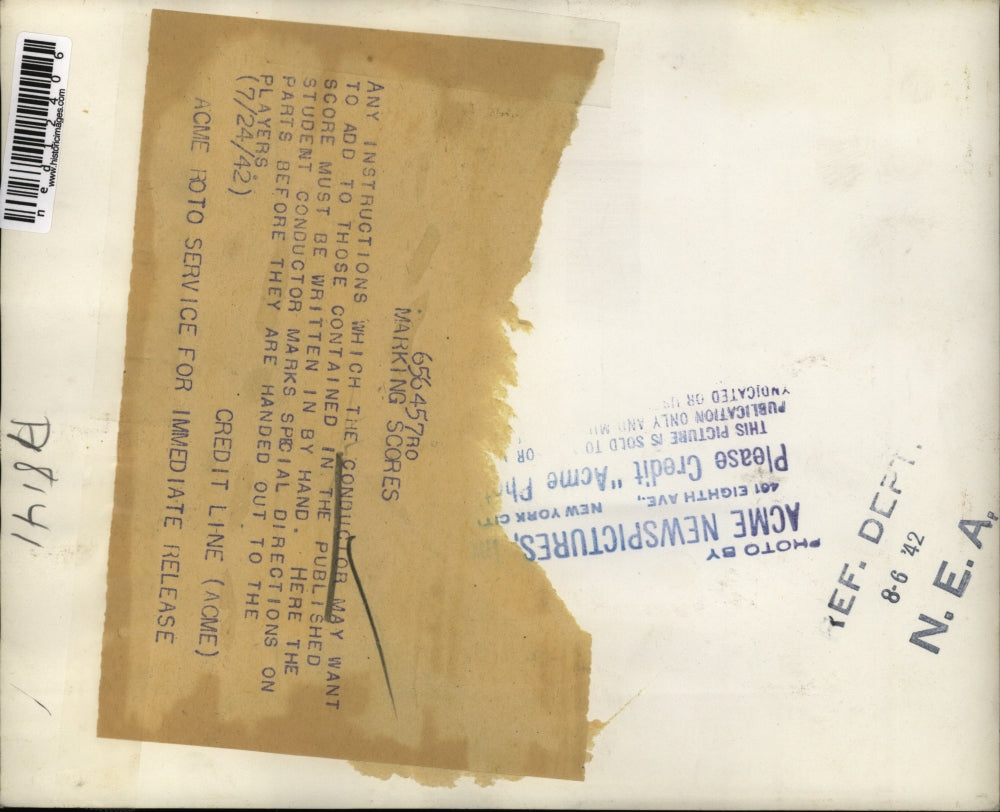 656457RO
MARKING SCORES
ANY INSTRUCTIONS WHICH THE CONDUCTOR MAY WANT
TO ADD TO THOSE CONTAINED IN THE PUBLISHED
SCORE MUST BE WRITTEN IN BY HAND. HERE THE
STUDENT CONDUCTOR MARKS SPECIAL DIRECTIONS ON
PARTS BEFORE THEY ARE HANDED OUT TO THE
PLAYERS.
(7/24/42)
CREDIT LINE (ACME)
ACME ROTO SERVICE FOR IMMEDIATE RELEASE
PHOTO BY
ACME NEWSPICTURES,
461 EIGHTH AVE., NEW YORK CIT
Please Credit "Acme Ph
THIS PICTURE IS SOLD TO OR
PUBLICATION ONLY AND MU
YNDICATED OR US
EF. DEPT.
8-6 '42
N. E. A.
www.historicimages.com
ned12406